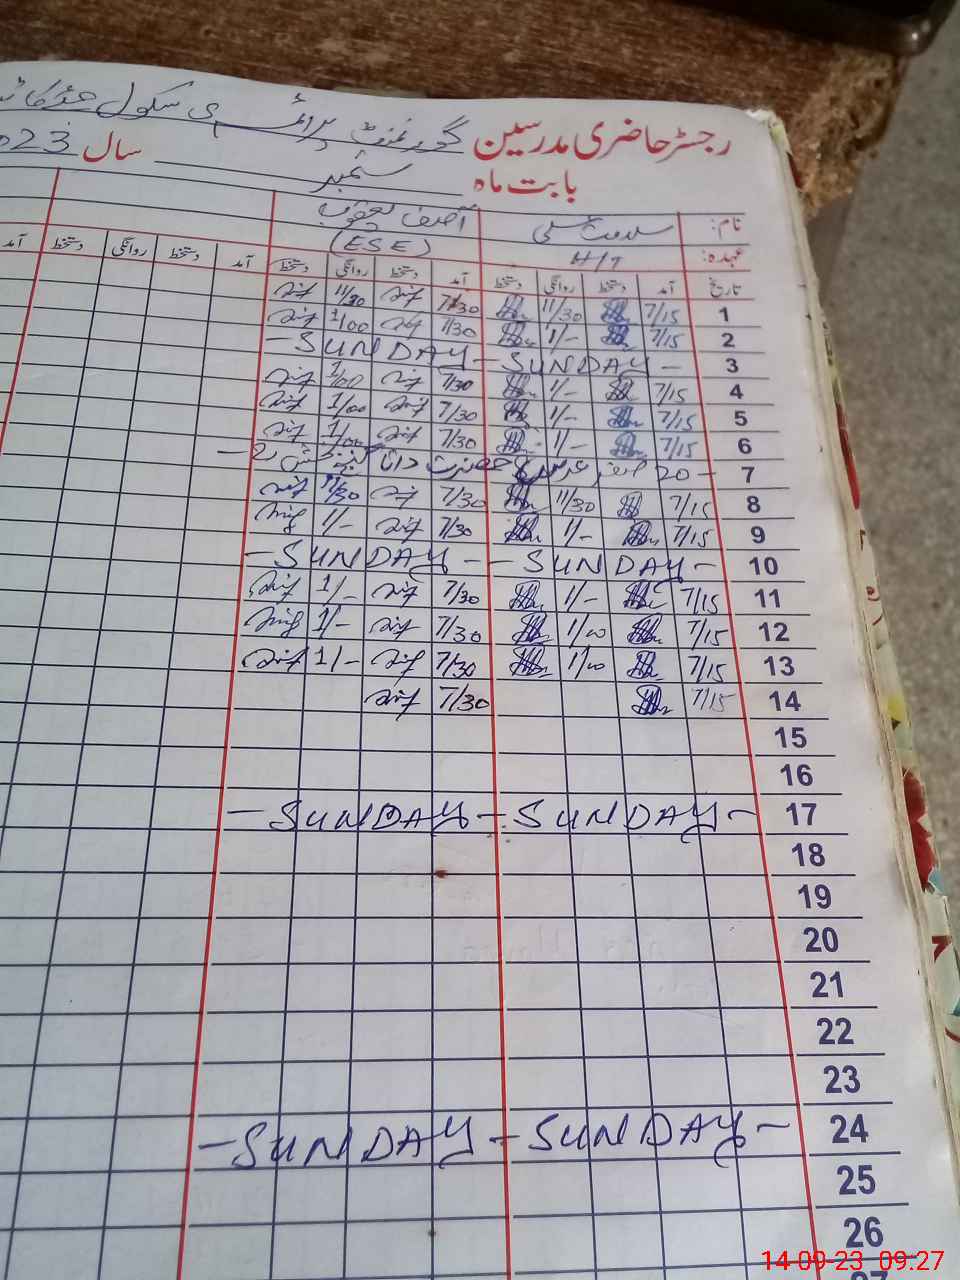 رجسٹر حاضری مدرسین گورنمنٹ پرائمری سکول
بابت ماہ ستمبر سال 2023
نام: سلامت علی آصف یعقوب
عہدہ: H/T (ESE)
تاریخ آمد دستخط روانگی دستخط آمد دستخط روانگی دستخط آمد دستخط روانگی دستخط آمد
1 7/15 11/30 7/30 11/30
2 7/15 1/- 7/30 1/00
3 - SUNDAY - SUNDAY -
4 7/15 1/- 7/30 1/00
5 7/15 1/- 7/30 1/00
6 7/15 1/- 7/30 1/00
7 - 20 صفر عرس حضرت داتا گنج بخش -
8 7/15 11/30 7/30 11/30
9 7/15 1/- 7/30 1/-
10 - SUNDAY - - SUNDAY -
11 7/15 1/- 7/30 1/-
12 7/15 1/00 7/30 1/-
13 7/15 1/00 7/30 1/-
14 7/15 7/30
15
16
17 - SUNDAY - SUNDAY -
18
19
20
21
22
23
24 - SUNDAY - SUNDAY -
25
26
27
14-09-23 09:27